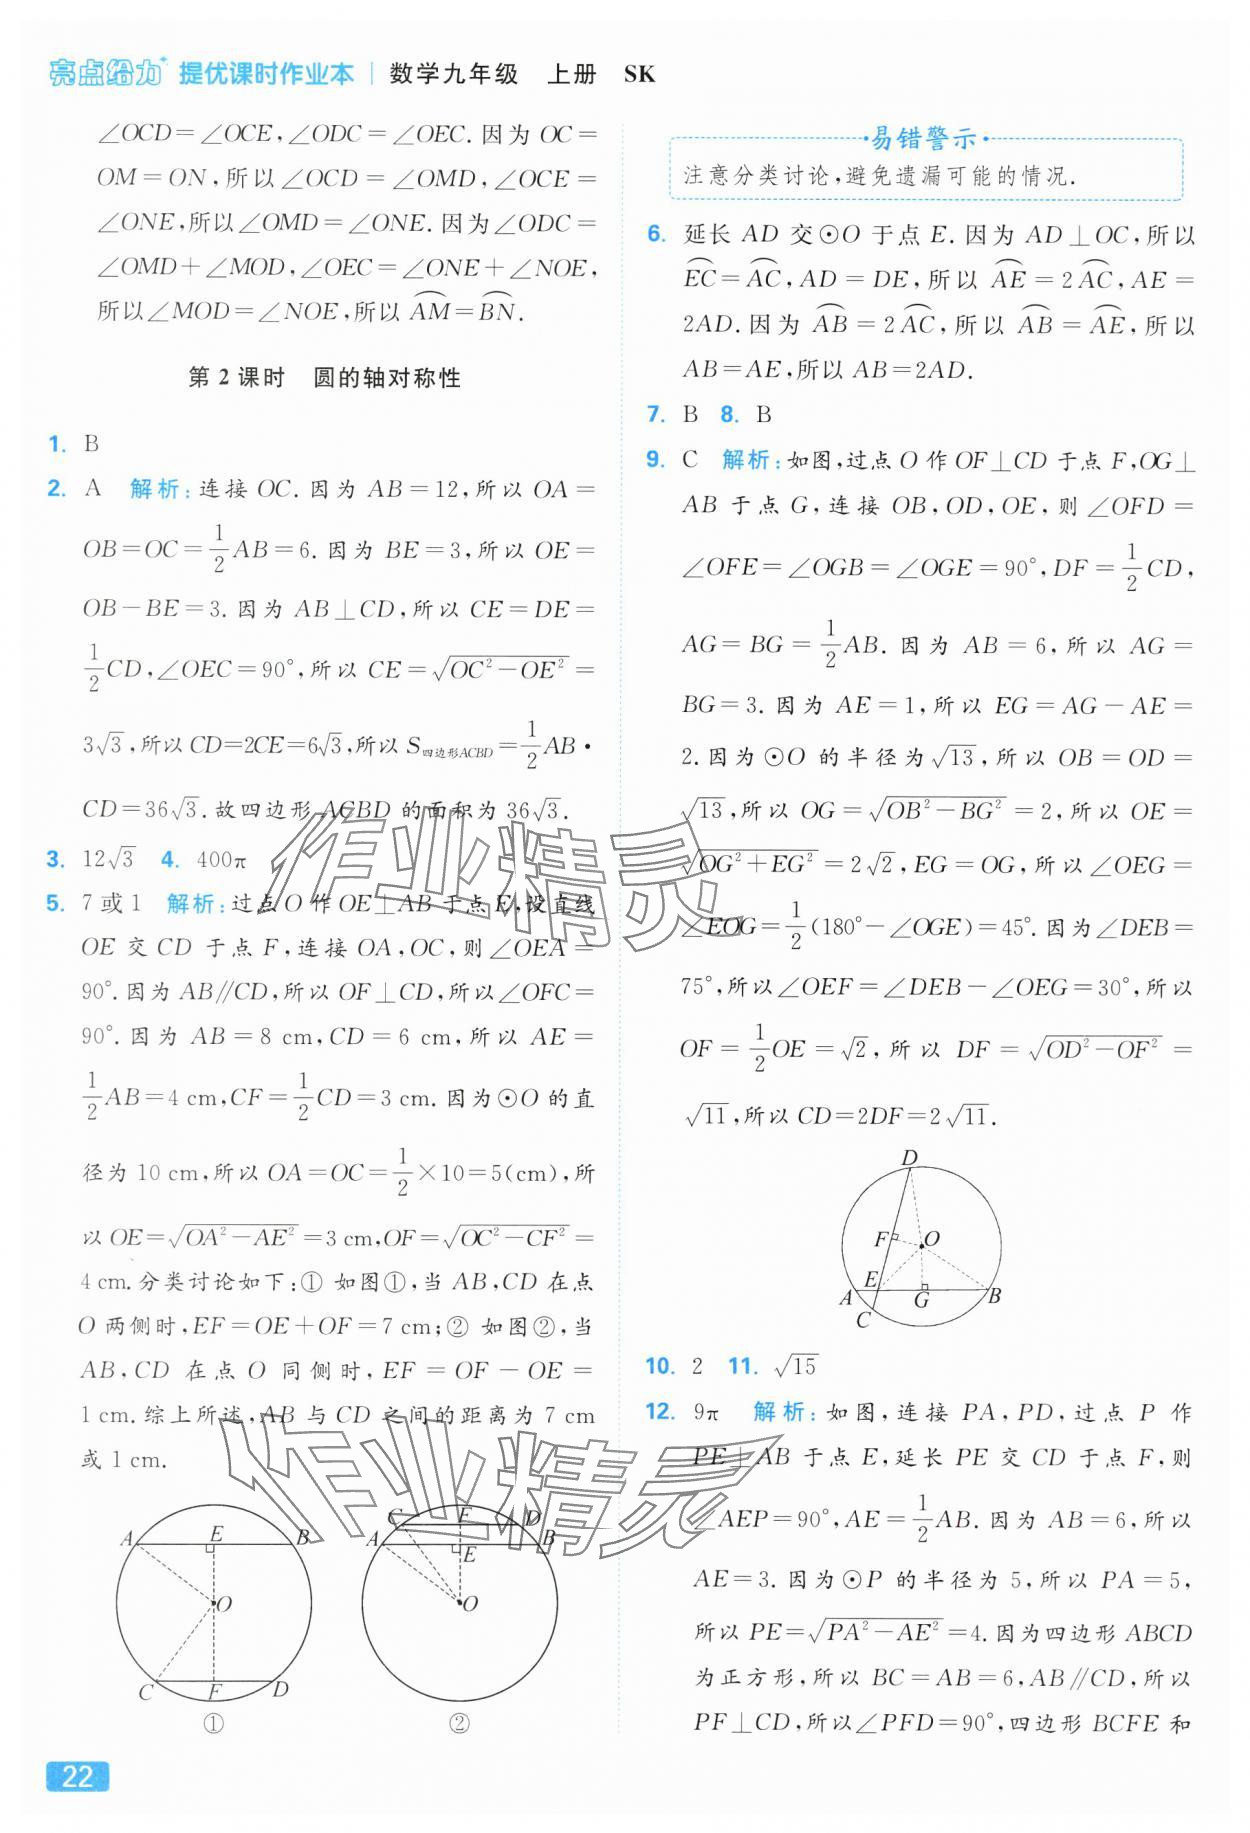 亮点给力 提优课时作业本 | 数学九年级 上册 SK
∠OCD=∠OCE,∠ODC=∠OEC.因为OC=
OM=ON,所以∠OCD=∠OMD,∠OCE=
∠ONE,所以∠OMD=∠ONE.因为∠ODC=
∠OMD+∠MOD,∠OEC=∠ONE+∠NOE,
所以∠MOD=∠NOE,所以⌒AM=⌒BN.
第2课时 圆的轴对称性
1. B
2. A 解析:连接OC.因为AB=12,所以OA=
OB=OC=1/2AB=6.因为BE=3,所以OE=
OB-BE=3.因为AB⊥CD,所以CE=DE=
1/2CD,∠OEC=90°,所以CE=√(OC²-OE²)=
3√3,所以CD=2CE=6√3,所以S四边形ACBD=1/2AB·
CD=36√3.故四边形ACBD的面积为36√3.
3. 12√3 4. 400π
5. 7或1 解析:过点O作OE⊥AB于点E,设直线
OE交CD于点F,连接OA,OC,则∠OEA=
90°.因为AB∥CD,所以OF⊥CD,所以∠OFC=
90°.因为AB=8 cm,CD=6 cm,所以AE=
1/2AB=4 cm,CF=1/2CD=3 cm.因为⊙O的直
径为10 cm,所以OA=OC=1/2×10=5(cm),所
以OE=√(OA²-AE²)=3 cm,OF=√(OC²-CF²)=
4 cm.分类讨论如下:①如图①,当AB,CD在点
O两侧时,EF=OE+OF=7 cm;②如图②,当
AB,CD在点O同侧时,EF=OF-OE=
1 cm.综上所述,AB与CD之间的距离为7 cm
或1 cm.
A E B
O
C F D
①
C F D
A E B
O
②
22
易错警示
注意分类讨论,避免遗漏可能的情况.
6. 延长AD交⊙O于点E.因为AD⊥OC,所以
⌒EC=⌒AC,AD=DE,所以⌒AE=2⌒AC,AE=
2AD.因为⌒AB=2⌒AC,所以⌒AB=⌒AE,所以
AB=AE,所以AB=2AD.
7. B 8. B
9. C 解析:如图,过点O作OF⊥CD于点F,OG⊥
AB于点G,连接OB,OD,OE,则∠OFD=
∠OFE=∠OGB=∠OGE=90°,DF=1/2CD,
AG=BG=1/2AB.因为AB=6,所以AG=
BG=3.因为AE=1,所以EG=AG-AE=
2.因为⊙O的半径为√13,所以OB=OD=
√13,所以OG=√(OB²-BG²)=2,所以OE=
√(OG²+EG²)=2√2,EG=OG,所以∠OEG=
∠EOG=1/2(180°-∠OGE)=45°.因为∠DEB=
75°,所以∠OEF=∠DEB-∠OEG=30°,所以
OF=1/2OE=√2,所以DF=√(OD²-OF²)=
√11,所以CD=2DF=2√11.
D
F O
E
A G B
C
10. 2 11. √15
12. 9π 解析:如图,连接PA,PD,过点P作
PE⊥AB于点E,延长PE交CD于点F,则
∠AEP=90°,AE=1/2AB.因为AB=6,所以
AE=3.因为⊙P的半径为5,所以PA=5,
所以PE=√(PA²-AE²)=4.因为四边形ABCD
为正方形,所以BC=AB=6,AB∥CD,所以
PF⊥CD,所以∠PFD=90°,四边形BCFE和
作业精灵
作业精灵